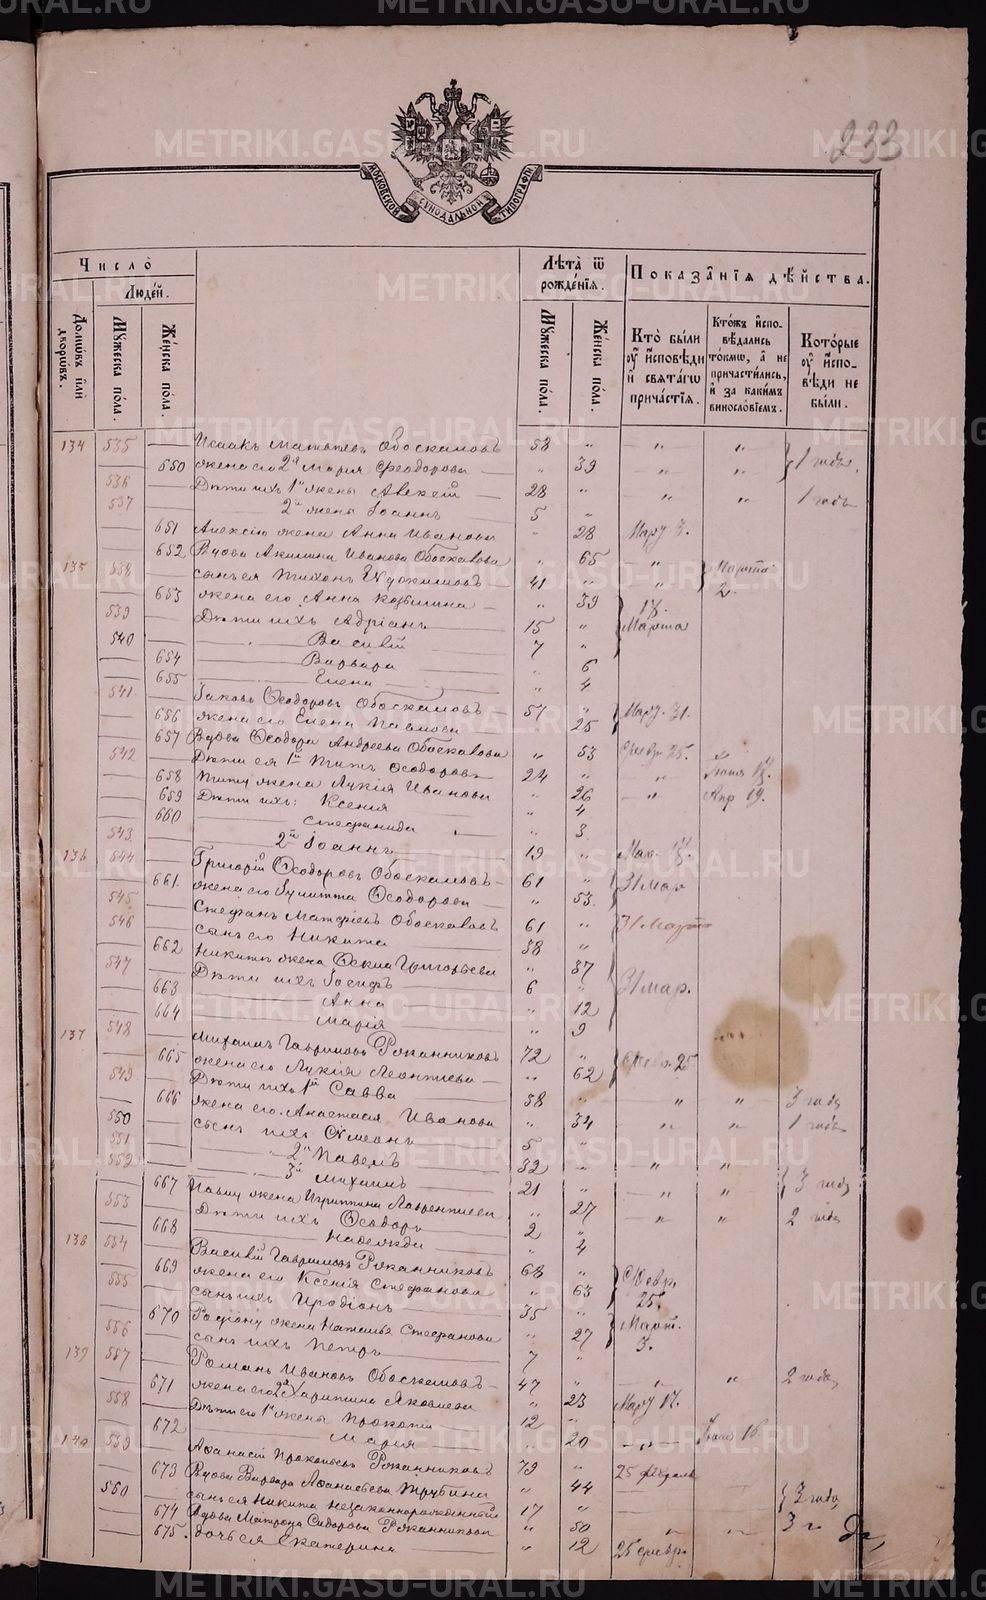 233
МОСКОВСКОЙ СѴНОДАЛЬНОЙ ТИПОГРАФІИ
Число̀
Людей.
Домѡвъ или дворѡвъ.
Мꙋжеска пола.
Же́нска пола.
Лѣта̀ ѿ рожде́нїѧ.
Мꙋжеска пола.
Же́нска пола.
Показа̑нїѧ дѣ́йства.
Кто̀ были ᲂу҆ и҆сповѣди и҆ свѧта́гѡ прича́стїѧ.
Кто́жъ и҆спо-вѣдались то́кмѡ, а҆ не причастились, и҆ за какимъ винословїемъ.
Кото́рые ᲂу҆ и҆спо-вѣди не были.
134 535 Исаакъ Матвѣевъ Обоскаловъ 58 „ „ „ 1 годъ.
650 жена его 2я Марія Ѳеодорова „ 39 „ „
536 Дѣти ихъ 1й жены Алексій 28 „ „ „ 1 годъ
537 2й жены Іоаннъ 5 „
651 Алексію жена Анна Иванова „ 28 Март 3.
652 Вдова Акилина Иванова Обоскалова „ 65 „ Марта
135 538 сынъ ея Тихонъ Евдокимовъ 41 „ „ 2
653 жена его Анна Козьмина „ 39
539 Дѣти ихъ Адріанъ 15 „ Марта
540 Василій 7 „
654 Варвара „ 6
655 Елена „ 4
541 Іаковъ Ѳеодоровъ Обоскаловъ 57 „ Март 31.
656 жена его Елена Павлова 25
657 Вдова Ѳеодора Андреева Обоскалова „ 53 Февр 25. „
542 Дѣти ея 1й Титъ Ѳеодоровъ 24 „ „ Іюня
658 Титу жена Лукія Иванова „ 26 „ Апр 19.
659 Дѣти ихъ: Ксенія „ 4
660 Стефанида „ 3
543 2й Іоаннъ 19 „
136 544 Григорій Ѳеодоровъ Обоскаловъ 61 „ 31 Мар
661. жена его Іулитта Ѳеодорова „ 53.
545 Стефанъ Матфіевъ Обоскаловъ 61 „ 31 Марта
546 сынъ его Никита 38 „
662 Никитѣ жена Григорьева „ 37
547 Дѣти ихъ Іосифъ 6 „ 31 Мар.
663 Анна „ 12
664 Марія „ 9
137 548 Михаилъ Гавриловъ Рожанниковъ 72 „ Февр. 25
665 жена его Лукія Леонтьева „ 62
549 Дѣти ихъ 1й Савва 38 „ „ „ 3 года
666 жена его Анастасія Иванова „ 34 „ „ 1 годъ
550 сынъ ихъ Симеонъ 5 „
551 2й Павелъ 32 „ „ „
552 3й Михаилъ 21 „ „ „ 3 года
667 Павлу жена Агриппина Лаврентьева „ 27
553 Дѣти ихъ Ѳеодоръ 2 „ „ „ 2 года
668 Надежда „ 4
138 554 Василій Гавриловъ Рожанниковъ 68 „ Февр.
669 жена его Ксенія Стефанова „ 63 25.
555 сынъ ихъ Иродіонъ 35 „
670 Родіону жена Наталья Стефанова „ 27 Март.
556 сынъ ихъ Петръ 7 „ 3.
139 557 Романъ Ивановъ Обоскаловъ 47 „ „ „ 2 года
671 жена его 2я Харитина Яковлева „ 23 Март 17.
558 Дѣти его 1й жены Прокопій 12 „
672 Марія „ 20 „
140 559 Аѳанасій Прокопьевъ Рожанниковъ 79 „ 25 февраля
673 Вдова Варвара Аѳанасьева Трубина „ 44
560 сынъ ея Никита незаконнорожденный 17 „ 2 года
674 Вдова Матрона Сидорова Рожанникова „ 50 „ „ 3 г
675. дочь ея Екатерина „ 12 25 февр.
METRIKI.GASO-URAL.RU